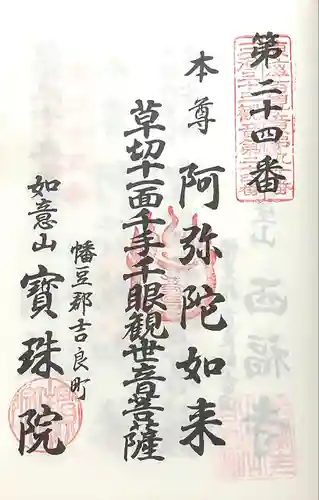 第二十四番
本尊 阿弥陀如来
草切十一面千手千眼観世音菩薩
幡豆郡吉良町
如意山 寳珠院